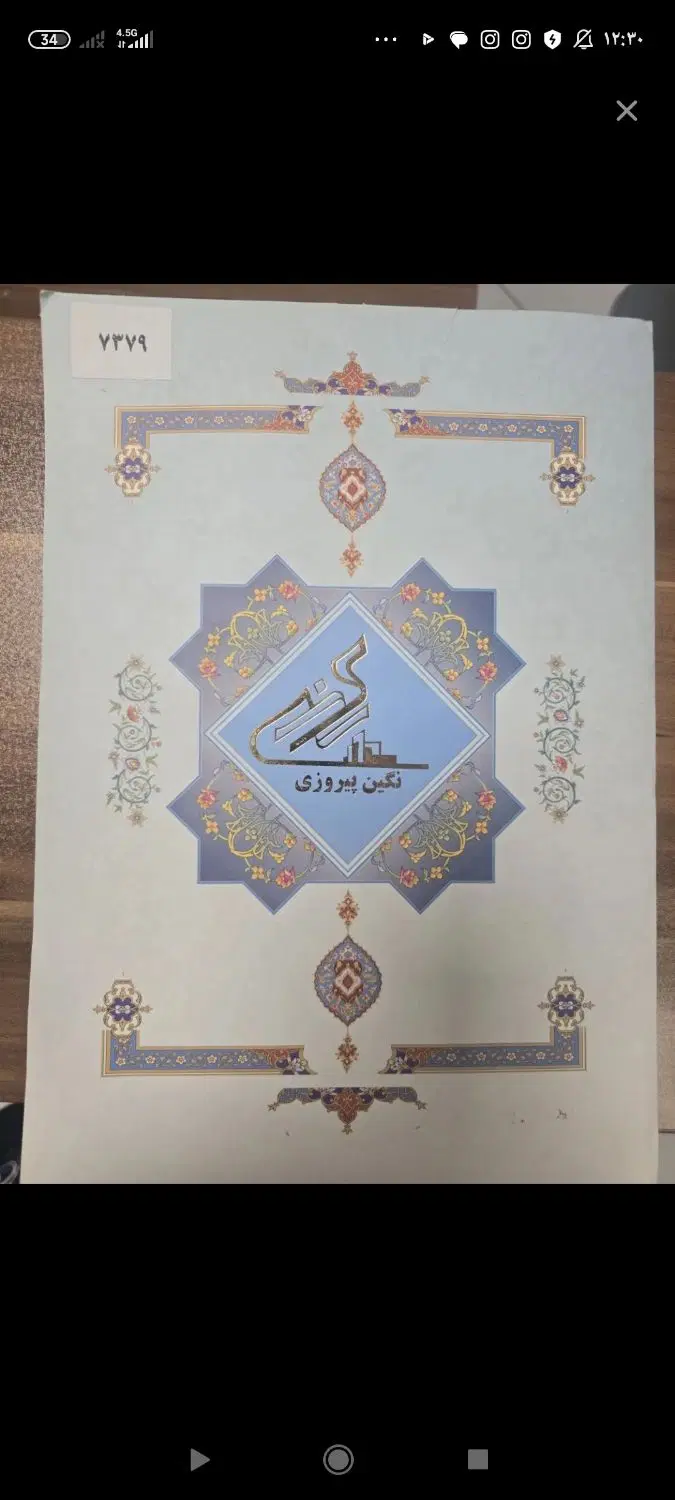 34
4.5G
۱۲:۳۰
۷۳۷۹
نگین پیروزی